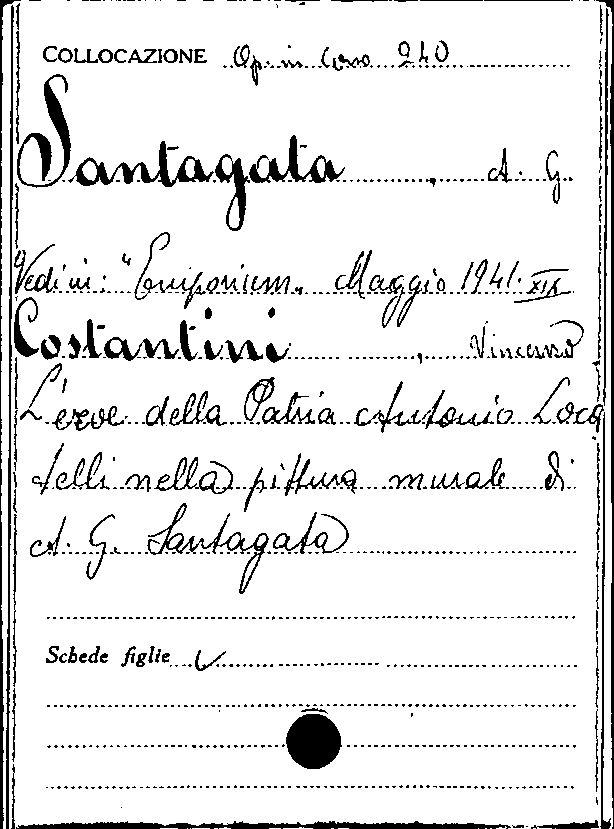 COLLOCAZIONE Op. in Corso 240
Santagata, A. G.
Vedi in: "Emporium" Maggio 1941. XIX
Costantini, Vincenzo
L'eroe della Patria Antonio Loca
telli nella pittura murale di
A. G. Santagata
Schede figlie